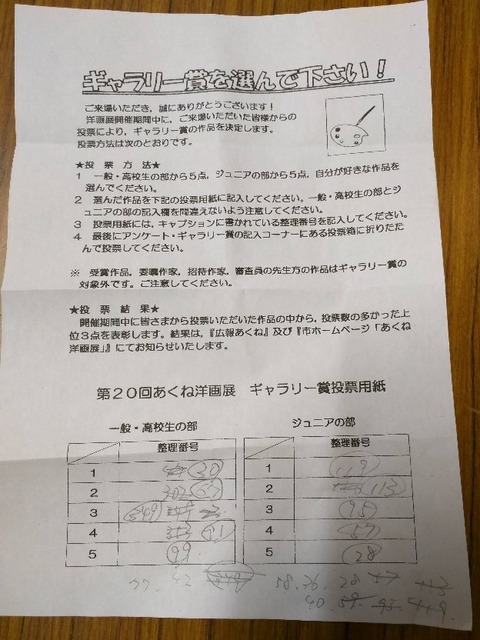 ギャラリー賞を選んで下さい！
ご来場いただき，誠にありがとうございます！
洋画展開催期間中に、ご来場いただいた皆様からの
投票により，ギャラリー賞の作品を決定します。
投票方法は次のとおりです。
★投票方法★
1 一般・高校生の部から５点，ジュニアの部から５点，自分が好きな作品を
選んでください。
2 選んだ作品を下記の投票用紙に記入してください。一般・高校生の部とジ
ュニアの部の記入欄を間違えないよう注意してください。
3 投票用紙には，キャプションに書かれている整理番号を記入してください。
4 最後にアンケート・ギャラリー賞の記入コーナーにある投票箱に折りたた
んで投票してください。
※ 受賞作品，委嘱作家，招待作家，審査員の先生方の作品はギャラリー賞の
対象外です。ご注意してください。
★投票結果★
開催期間中に皆さまから投票いただいた作品の中から，投票数の多かった上
位３点を表彰します。結果は，『広報あくね』及び『市ホームページ「あくね
洋画展」』にてお知らせいたします。
第２０回あくね洋画展 ギャラリー賞投票用紙
一般・高校生の部 ジュニアの部
整理番号 整理番号
1 30 1 119
2 2 113
3 3
4 4 57
5 99 5 28
58. 36 28
40